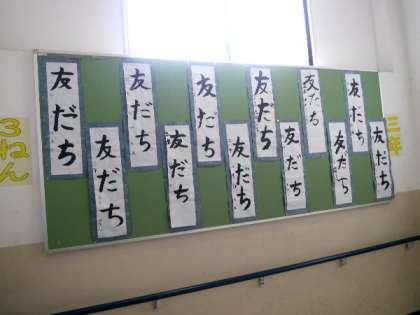 3ねん
友だち
友だち
友だち
友だち
友だち
友だち
友だち
友だち
友だち
友だち
友だち
友だち
三年